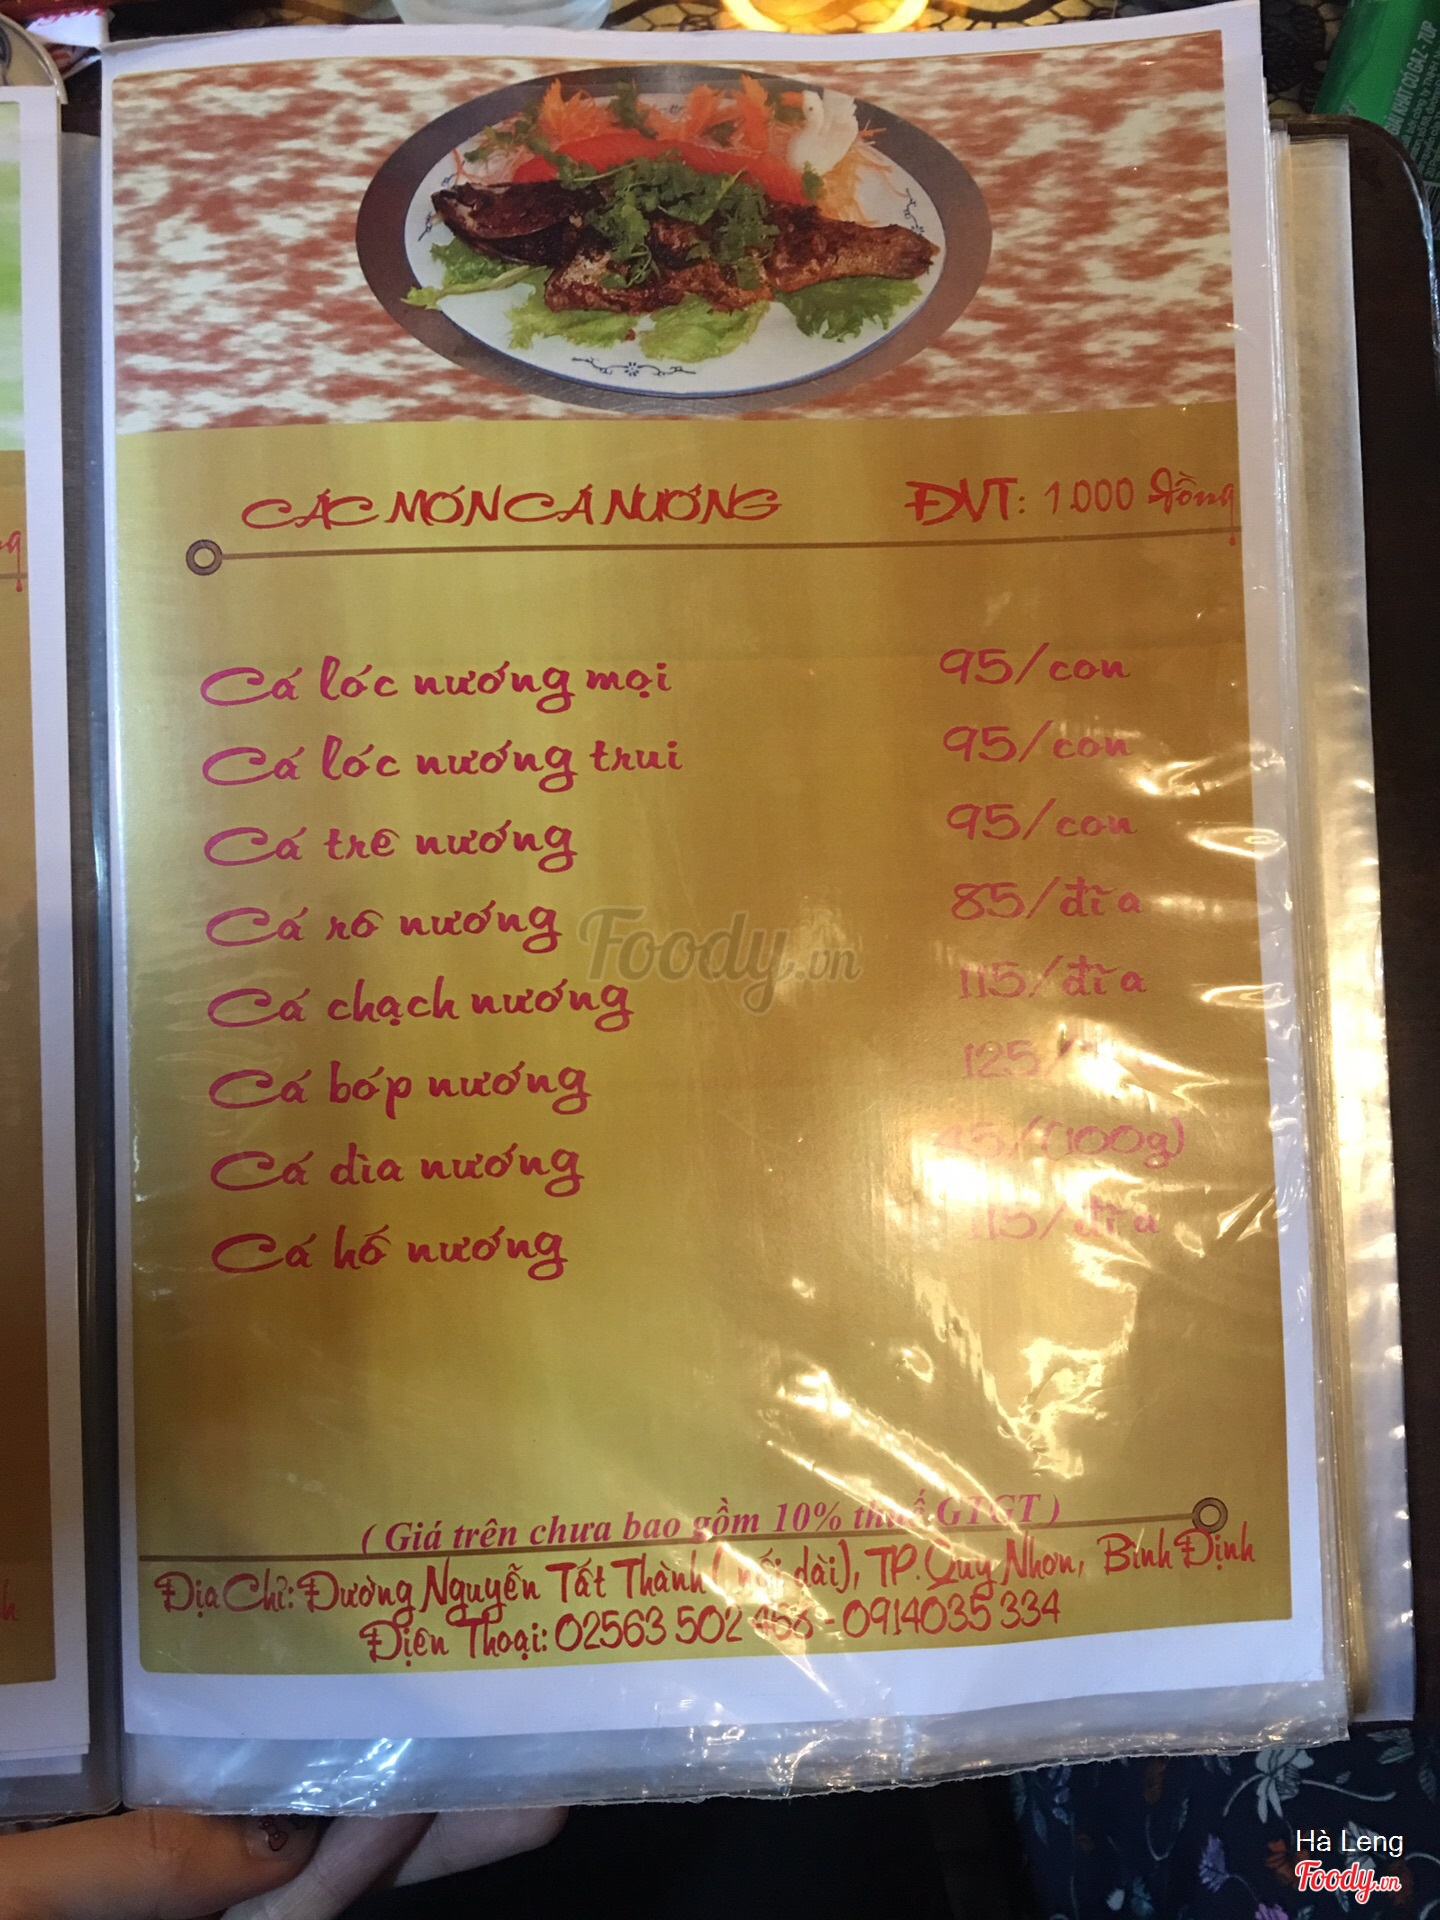 CÁC MÓN CÁ NƯỚNG ĐVT: 1.000 đồng
Cá lóc nướng mọi 95/con
Cá lóc nướng trui 95/con
Cá trê nướng 95/con
Cá rô nướng 85/đĩa
Cá chạch nướng 115/đĩa
Cá bớp nướng 125/
Cá dìa nướng 45/(100g)
Cá hố nướng 115/đĩa
Foody.vn
( Giá trên chưa bao gồm 10% thuế GTGT )
Địa Chỉ: Đường Nguyễn Tất Thành ( nối dài), TP. Quy Nhơn, Bình Định
Điện Thoại: 02563 502 458 - 0914035 334
Hà Leng
Foody.vn